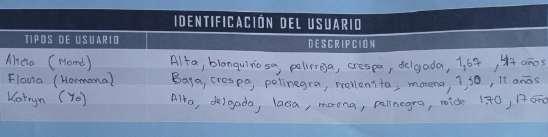 IDENTIFICACIÓN DEL USUARIO
TIPOS DE USUARIO DESCRIPCIÓN
Alicia (Mamá) Alta, blanquinosa, pelirroja, crespa, delgada, 1,67, 47 años
Flavia (Hermana) Baja, crespa, pelinegra, rellenita, morena, 1,50, 11 años
Katryn (Yo) Alta, delgada, lacia, morena, pelinegra, mide 1.70, 17 año